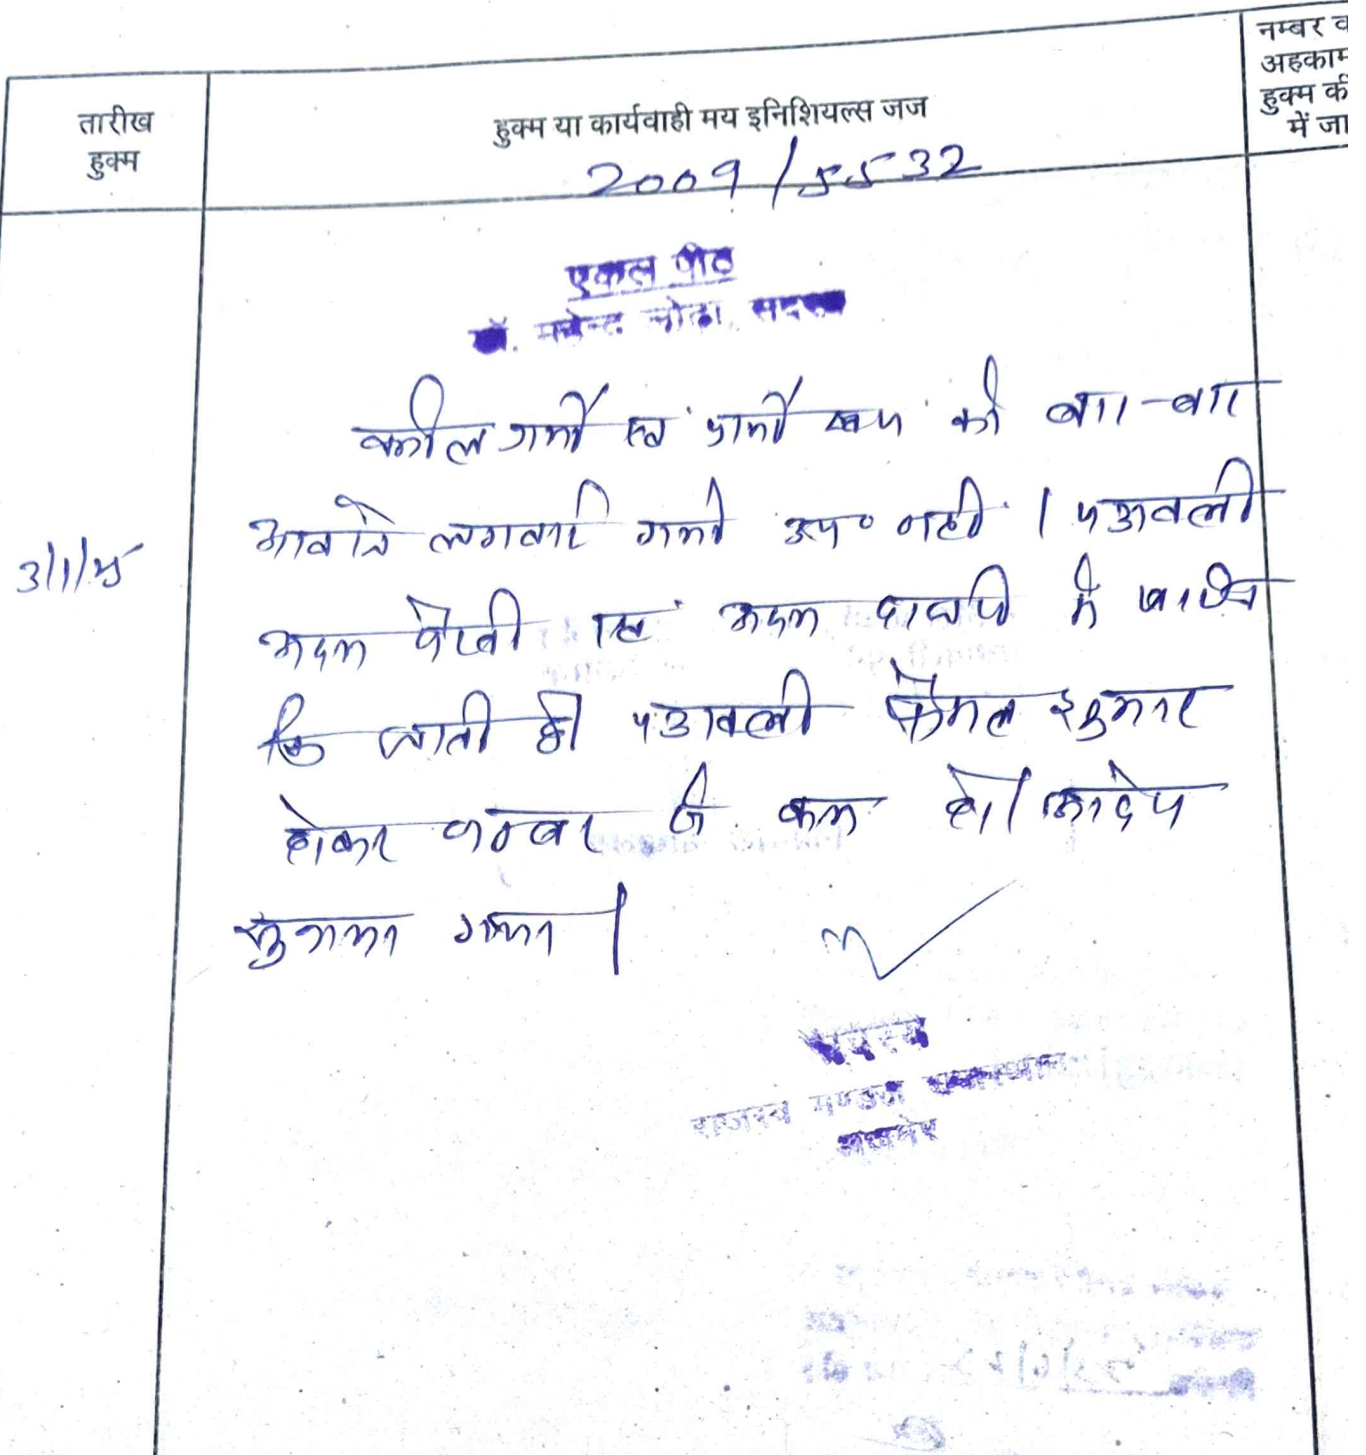 तारीख
हुक्म
हुक्म या कार्यवाही मय इनिशियल्स जज
नम्बर व
अहकाम
हुक्म की
में जा
2009/5532
एकल पीठ
डॉ. महेन्द्र लोढ़ा, सदस्य
3/1/25
वकील प्रार्थी एवं प्रार्थी स्वयं को बार-बार
आवाजे लगवाई गयी उप० नही। पत्रावली
अदम पैरवी एवं अदम हाजरी में खारिज
कि जाती है पत्रावली फैसल शुमार
होकर नम्बर से कम हो। आदेश
सुनाया गया।
सदस्य
राजस्व मण्डल राजस्थान
अजमेर